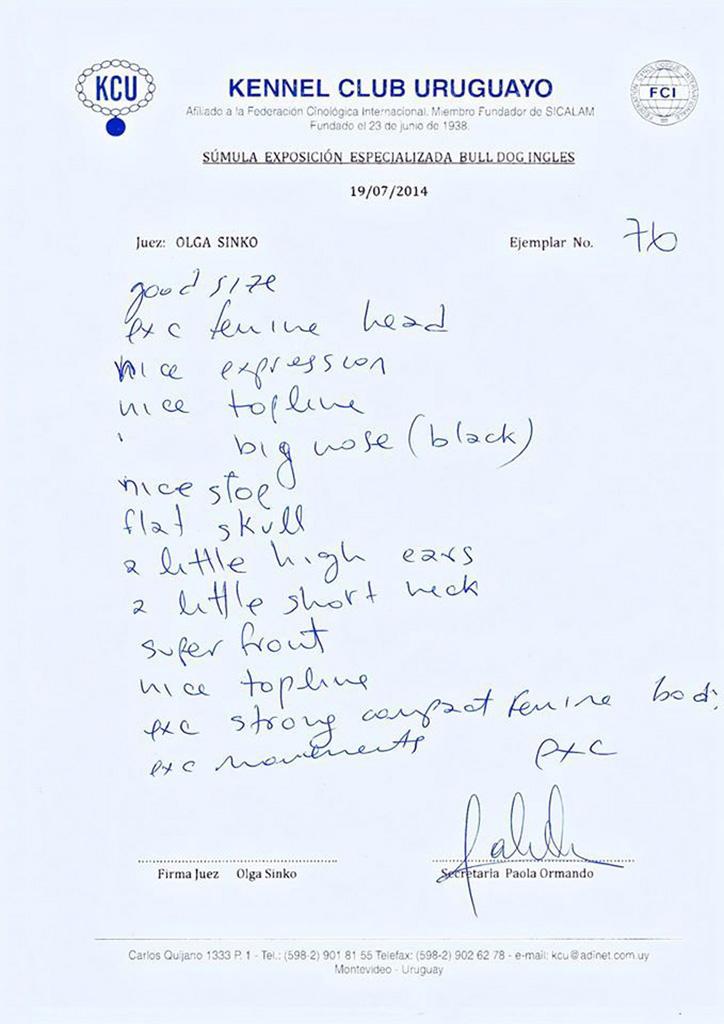 KCU
KENNEL CLUB URUGUAYO
FCI
Afiliado a la Federación Cinológica Internacional. Miembro Fundador de SICALAM
Fundado el 23 de junio de 1938.
SÚMULA EXPOSICIÓN ESPECIALIZADA BULL DOG INGLES
19/07/2014
Juez: OLGA SINKO
Ejemplar No. 76
good size
exc femine head
nice expression
nice topline
big nose (black)
nice stop
flat skull
a little high ears
a little short neck
super front
nice topline
exc strong compact femine bod
exc movements exc
Firma Juez Olga Sinko
Secretaria Paola Ormando
Carlos Quijano 1333 P. 1 - Tel.: (598-2) 901 81 55 Telefax: (598-2) 902 62 78 - e-mail: kcu@adinet.com.uy
Montevideo - Uruguay